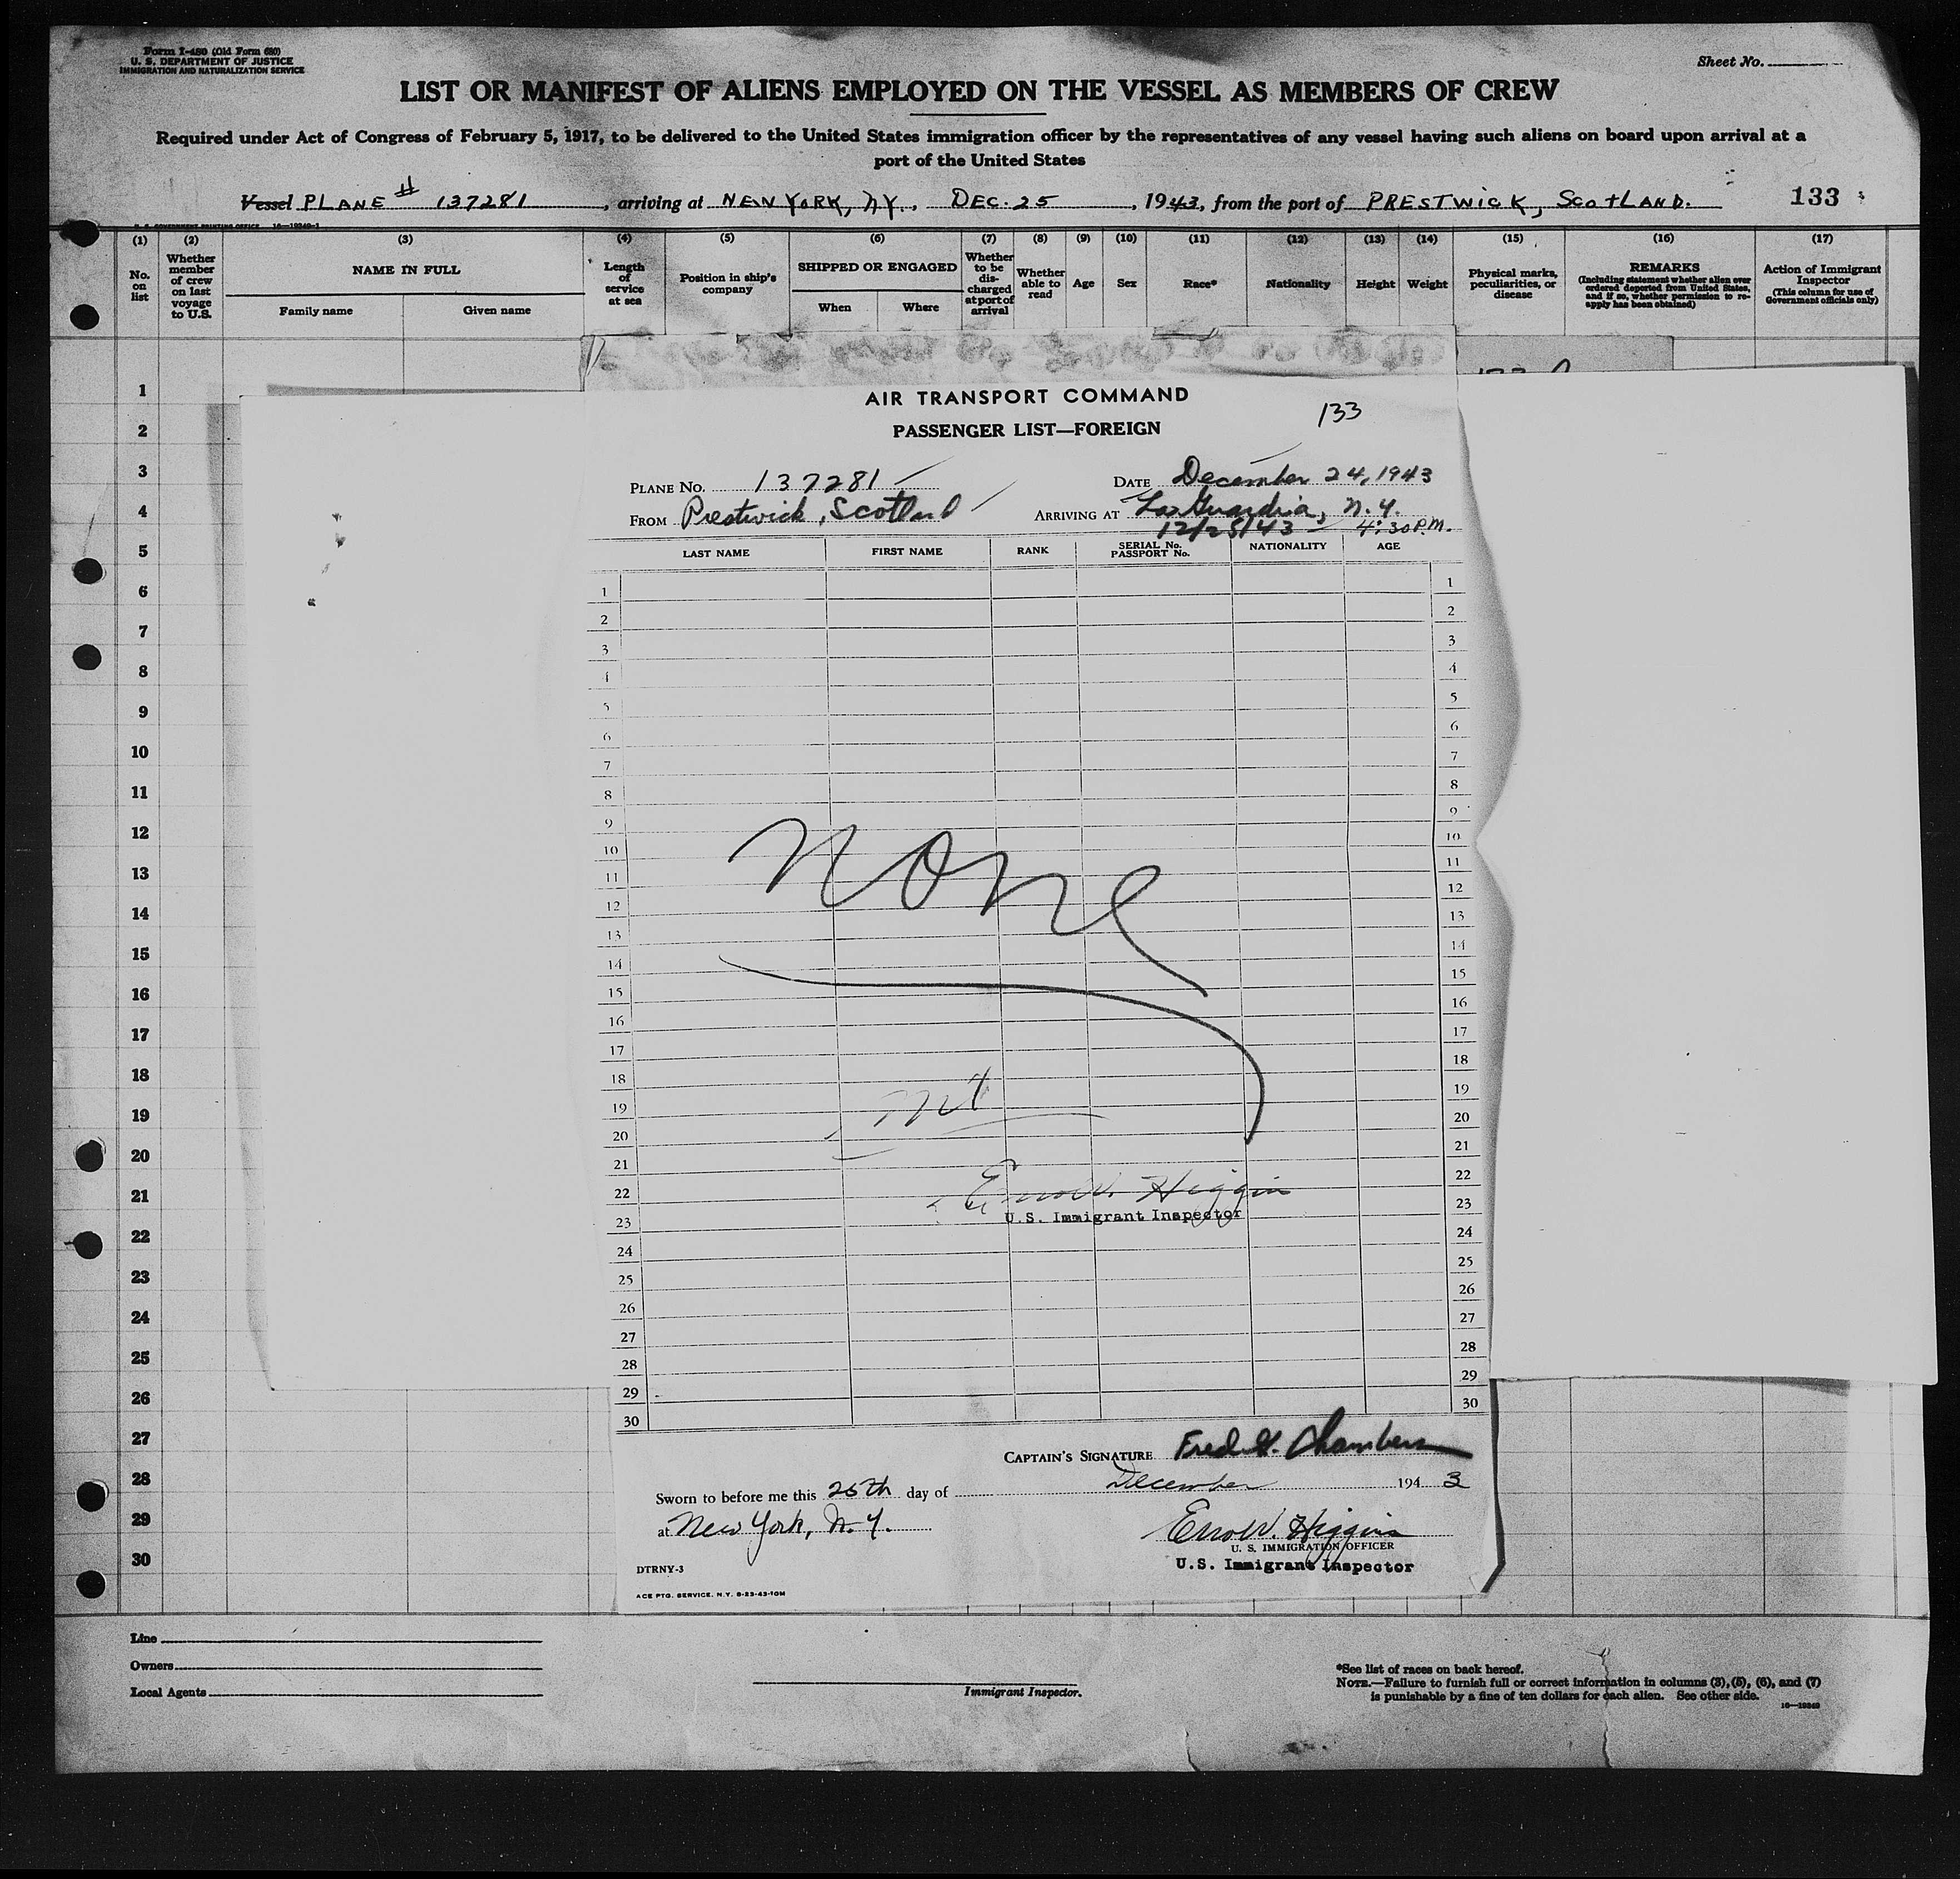 Form I-480 (Old Form 680)
U. S. DEPARTMENT OF JUSTICE
IMMIGRATION AND NATURALIZATION SERVICE
Sheet No.
LIST OR MANIFEST OF ALIENS EMPLOYED ON THE VESSEL AS MEMBERS OF CREW
Required under Act of Congress of February 5, 1917, to be delivered to the United States immigration officer by the representatives of any vessel having such aliens on board upon arrival at a
port of the United States
Vessel PLANE # 137281, arriving at NEW YORK, NY., DEC. 25, 1943, from the port of PRESTWICK, SCOTLAND. 133
(1) (2) (3) (4) (5) (6) (7) (8) (9) (10) (11) (12) (13) (14) (15) (16) (17)
No. on list
Whether member of crew on last voyage to U.S.
NAME IN FULL
Family name
Given name
Length of service at sea
Position in ship's company
SHIPPED OR ENGAGED
When
Where
Whether to be discharged at port of arrival
Whether able to read
Age
Sex
Race*
Nationality
Height
Weight
Physical marks, peculiarities, or disease
REMARKS
(Including statement whether alien ever ordered deported from United States, and if so, whether permission to re-apply has been obtained)
Action of Immigrant Inspector
(This column for use of Government officials only)
1
2
3
4
5
6
7
8
9
10
11
12
13
14
15
16
17
18
19
20
21
22
23
24
25
26
27
28
29
30
AIR TRANSPORT COMMAND
133
PASSENGER LIST—FOREIGN
PLANE No. 137281
DATE December 24, 1943
FROM Prestwick, Scotland
ARRIVING AT LaGuardia, N.Y.
12/25/43 4:30 P.M.
LAST NAME FIRST NAME RANK SERIAL No. PASSPORT No. NATIONALITY AGE
1 1
2 2
3 3
4 4
5 5
6 6
7 7
8 8
9 9
10 10
11 11
12 12
13 13
14 14
15 15
16 16
17 17
18 18
19 19
20 20
21 21
22 22
23 23
24 24
25 25
26 26
27 27
28 28
29 29
30 30
None
Errol W. Higgins
U.S. Immigrant Inspector
CAPTAIN'S SIGNATURE Fred H. Chambers
Sworn to before me this 25th day of December 1943
at New York, N.Y.
Errol W. Higgins
U. S. IMMIGRATION OFFICER
U.S. Immigrant Inspector
DTRNY-3
ACE PTG. SERVICE, N.Y. 8-23-43-10M
Line
Owners
Local Agents
Immigrant Inspector.
*See list of races on back hereof.
NOTE.—Failure to furnish full or correct information in columns (3), (5), (6), and (7)
is punishable by a fine of ten dollars for each alien. See other side.